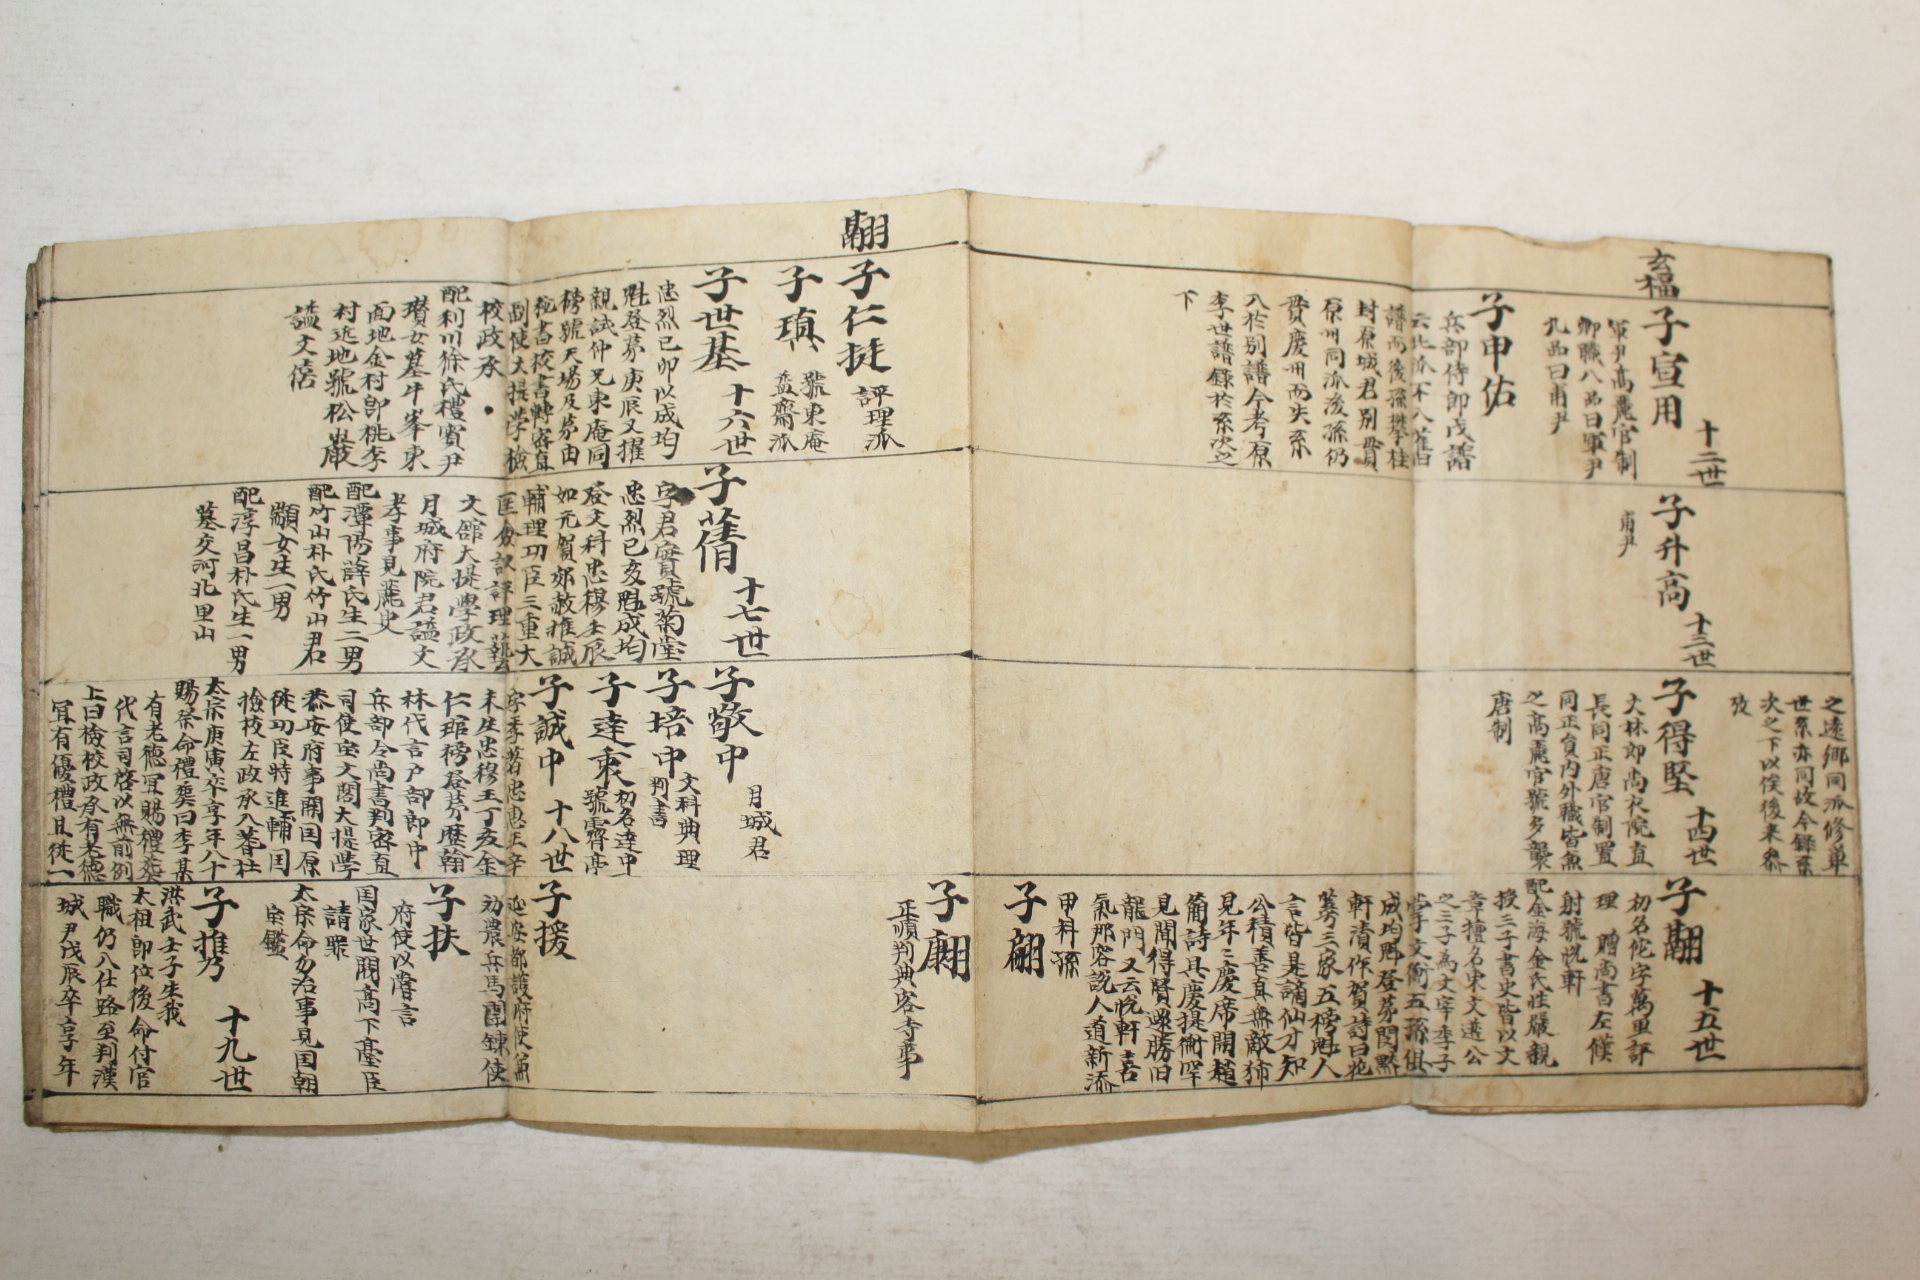 玄福
子宣用 十二世
軍尹高麗官制
卿職八品曰軍尹
九品曰甫尹
子申佑
兵部侍郎戊譜
云此派不入舊
譜而後孫攀桂
封原城君別貫
原州同派後孫仍
貫慶州而失系
入於別譜今考原
李世譜錄於系次之
下
子升高 十三世
甫尹
之遠鄉同派修單
世系亦同故今錄系
次之下以俟後來參
攷
子得堅 十四世
文林郎尚衣院直
長同正唐官制置
同正員內外職皆無
之高麗官號多襲
唐制
子翮 十五世
初名佗字萬里評
理 贈尚書左僕
射號悅軒
配金海金氏性嚴親
授三子書史皆以文
章擅名東文選公
之三子為文宰季子
掌文衡五孫俱
成均
軒漬作賀詩曰
三家五榜魁人
言皆是謫仙才知
公積善真無敵
見年年慶席開趙
葡詩具慶提衡罕
見聞得賢勝旧
龍門又云悅軒喜
氣那容說人道新添
甲科孫
子翩
子翩
正順判典客寺事
翮
子仁挺 評理派
子瑱 號東庵
益齋派
子世基 十六世
忠烈己卯以成均
魁登第庚辰又擢
親試仲兄東庵同
榜號天場及第由
秘書校書轉密直
副使大提學檢
校政丞
配利川徐氏禮賓尹
瓚女墓牛峯東
面地金村即桃李
村近地號松巖
諡文僖
子蒨 十七世
字君實號菊堂
忠烈己亥魁成均
登文科忠穆壬辰
如元賀郊赦推誠
輔理功臣三重大
匡僉議評理藝
文舘大提學政丞
月城府院君諡文
孝事見麗史
配潭陽薛氏生二男
配竹山朴氏竹山君
顓女生一男
配淳昌朴氏生一男
墓交河北里山
子敬中 月城君
子培中 文科典理
判書
子達衷 初名達中
號霽亭
子誠中 十八世
字季著忠惠王辛
未生忠穆王丁亥金
仁琯榜登第歷翰
林代言戶部郎中
兵部令尚書判密直
司使宝文閣大提學
恭安府事開国原
從功臣特進輔囯
檢校左政丞入蓍社
太宗庚寅卒享年八十
賜祭命禮葬曰李某
有老德冝賜禮葬
代言司啓以無前例
上曰檢校政丞有老德
冝有優禮且從一
子援
延安都護府使兼
勸農兵馬團鍊使
子扶
府使以詹言
囯家世閥高下臺臣
請罪
太宗命勿治事見囯朝
宝鑑
子推 十九世
洪武壬子生我
太祖即位後命付官
職仍入仕路至判漢
城尹戊辰卒享年